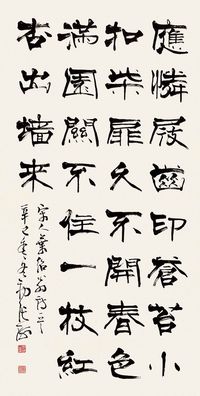 應憐屐齒印蒼苔小
扣柴扉久不開春色
滿園關不住一枝紅
杏出墻来
宋人葉紹翁詩